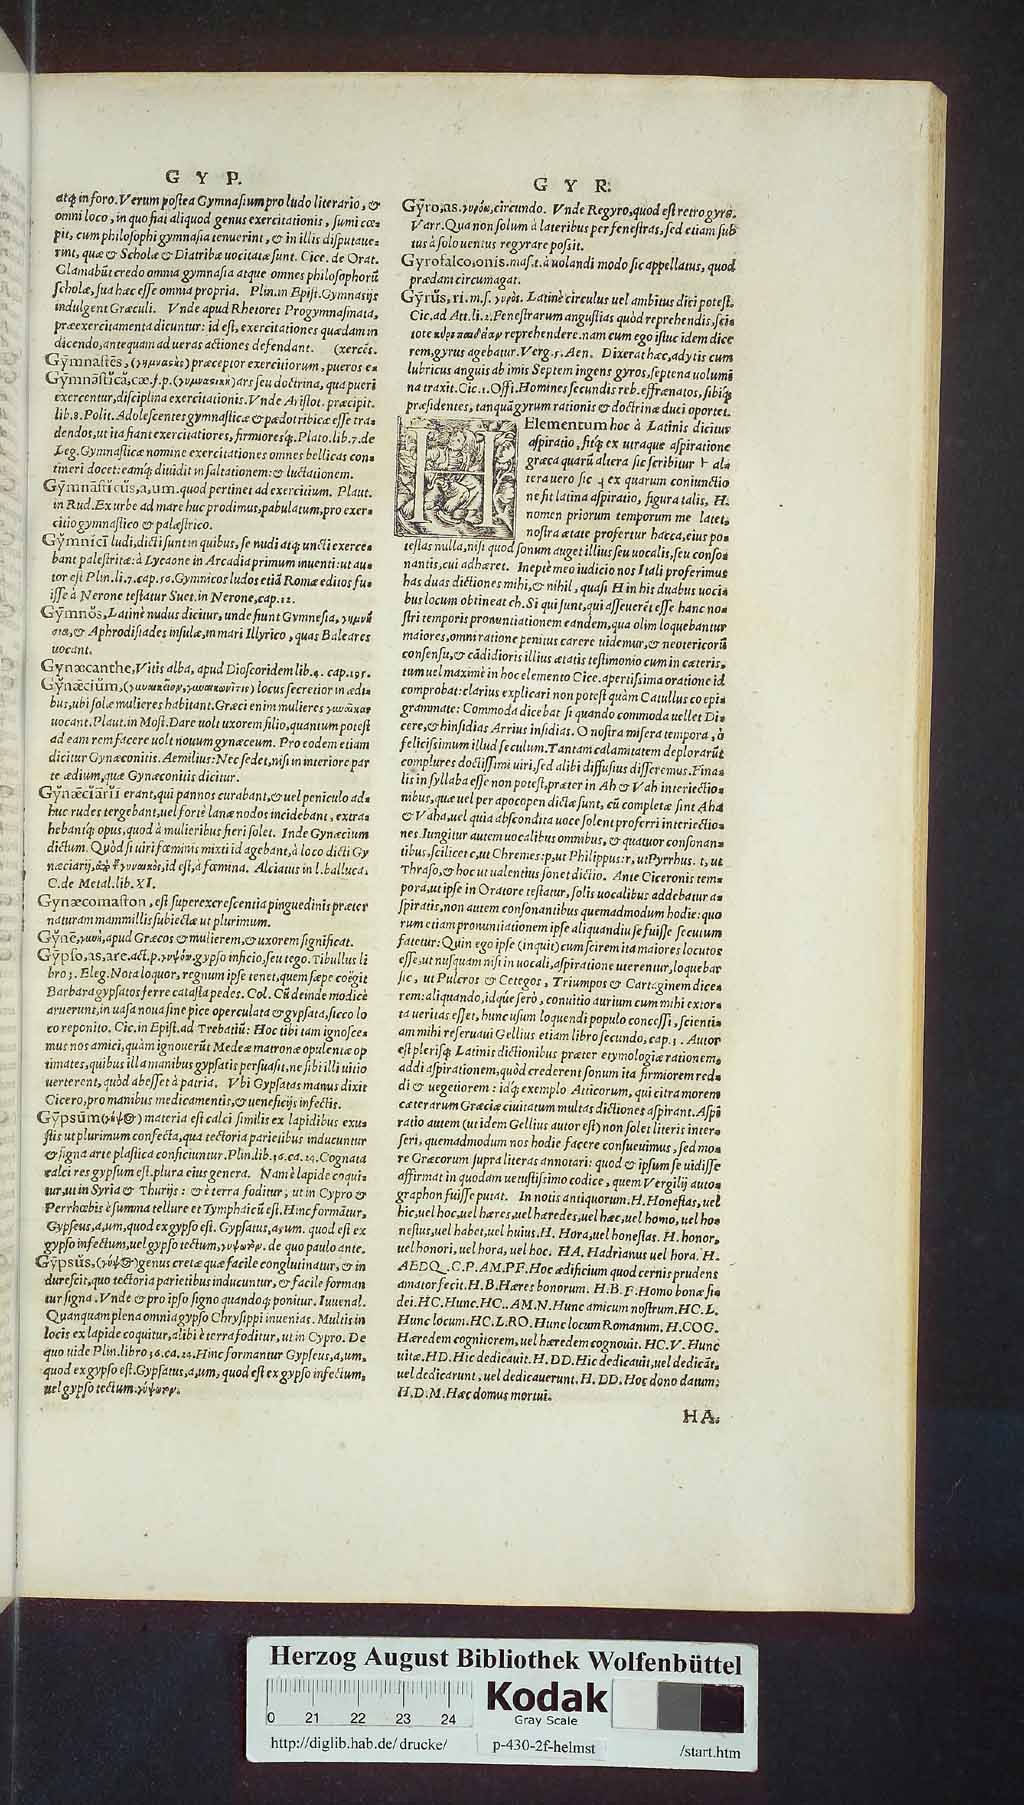 G Y P.
atq; in foro. Verum postea Gymnasium pro ludo literario, &
omni loco, in quo fiat aliquod genus exercitationis, sumi cœ=
pit, cum philosophi gymnasia tenuerint, & in illis disputaue=
rint, quæ & Scholæ & Diatribæ uocitatæ sunt. Cice. de Orat.
Clamabũt credo omnia gymnasia atque omnes philosophorũ
scholæ, sua hæc esse omnia propria. Plin. in Epist. Gymnasijs
indulgent Græculi. Vnde apud Rhetores Progymnasmata,
præexercitamenta dicuntur: id est, exercitationes quædam in
dicendo, antequam ad ueras actiones defendant. (xercẽs.
Gymnastes, (γυμναστὴς) præceptor exercitiorum, pueros e=
Gymnastica, cæ. f. p. (γυμναστικὴ) ars seu doctrina, qua pueri
exercentur, disciplina exercitationis. Vnde Aristot. præcipit.
lib. 8. Polit. Adolescentes gymnasticæ & pædotribicæ esse tra=
dendos, ut ita fiant exercitatiores, firmioresq;. Plato. lib. 7. de
Leg. Gymnasticæ nomine exercitationes omnes bellicas con=
tineri docet: eamq; diuidit in saltationem: & luctationem.
Gymnasticus, a, um. quod pertinet ad exercitium. Plaut.
in Rud. Ex urbe ad mare huc prodimus, pabulatum, pro exer=
citio gymnastico & palæstrico.
Gymnici ludi, dicti sunt in quibus, se nudi atq; uncti exerce=
bant palestritæ: à Lycaone in Arcadia primum inuenti: ut au=
tor est Plin. li. 7. cap. 50. Gymnicos ludos etiã Romæ editos fu=
isse à Nerone testatur Suet. in Nerone, cap. 12.
Gymnos, Latinè nudus dicitur, unde fiunt Gymnesia, γυμνή
σια, & Aphrodisiades insulæ, in mari Illyrico, quas Baleares
uocant.
Gynæcanthe, Vitis alba, apud Dioscoridem lib. 4. cap. 195.
Gynæcium, (γυναικεῖον, γυναικωνῖτις) locus secretior in ædi=
bus, ubi solæ mulieres habitant. Græci enim mulieres γυναῖκας
uocant. Plaut. in Most. Dare uolt uxorem filio, quantum potest
ad eam rem facere uolt nouum gynæceum. Pro eodem etiam
dicitur Gynæconitis. Aemilius: Nec sedet, nisi in interiore par
te ædium, quæ Gynæconitis dicitur.
Gynæciarii erant, qui pannos curabant, & uel peniculo ad=
huc rudes tergebant, uel fortè lanæ nodos incidebant, extra=
hebantq; opus, quod à mulieribus fieri solet. Inde Gynæcium
dictum. Quòd si uiri fœminis mixti id agebant, à loco dicti Gy
næciarij, γυναικὸς, id est, à fœmina. Alciatus in l. balluca.
C. de Metal. lib. XI.
Gynæcomaston, est superexcrescentia pinguedinis præter
naturam mammillis subiectæ ut plurimum.
Gyne, γυνὴ, apud Græcos & mulierem, & uxorem significat.
Gypso, as, are. act. p. γυψόω. gypso inficio, seu tego. Tibullus li
bro 3. Eleg. Nota loquor, regnum ipse tenet, quem sæpe coëgit
Barbara gypsatos ferre catasta pedes. Col. Cũ deinde modicè
aruerunt, in uasa noua sine pice operculata & gypsata, sicco lo
co reponito. Cic. in Epist. ad Trebatiũ: Hoc tibi tam ignosce=
mus nos amici, quàm ignouerũt Medeæ matronæ opulentæ op
timates, quibus illa manibus gypsatis persuasit, ne sibi illi uitio
uerterent, quòd abesset à patria. Vbi Gypsatas manus dixit
Cicero, pro manibus medicamentis, & ueneficijs infectis.
Gypsum (γύψος) materia est calci similis ex lapidibus exu=
stis ut plurimum confecta, qua tectoria parietibus inducuntur
& signa arte plastica conficiuntur. Plin. lib. 36. ca. 24. Cognata
calci res gypsum est. plura eius genera. Nam è lapide coqui=
tur, ut in Syria & Thurijs: & è terra foditur, ut in Cypro &
Perrhæbis è summa tellure et Tymphaicũ est. Hinc formãtur,
Gypseus, a, um, quod ex gypso est. Gypsatus, a, um. quod est ex
gypso infectum, uel gypso tectum, γυψωτὸν. de quo paulo ante.
Gypsus, (γύψος) genus cretæ quæ facile conglutinatur, & in
durescit, quo tectoria parietibus inducuntur, & facile forman
tur signa. Vnde & pro ipso signo quandoq; ponitur. Iuuenal.
Quanquam plena omnia gypso Chrysippi inuenias. Multis in
locis ex lapide coquitur, alibi è terra foditur, ut in Cypro. De
quo uide Plin. libro 36. ca. 24. Hinc formantur Gypseus, a, um,
quod ex gypso est. Gypsatus, a, um, quod est ex gypso infectum,
uel gypso tectum. γύψωτον.
G Y R.
Gyro, as. γυρόω, circundo. Vnde Regyro, quod est retro gyro.
Varr. Qua non solum à lateribus per fenestras, sed etiam sub
tus à solo uentus regyrare possit.
Gyrofalco, onis. mas. t. à uolandi modo sic appellatus, quod
prædam circumagat.
Gyrus, ri. m. s. γυρὸς. Latinè circulus uel ambitus dici potest.
Cic. ad Att. li. 2. Fenestrarum angustias quòd reprehendis, sci=
to te κύρου παιδείαν reprehendere. nam cum ego istuc idem dice
rem, gyrus agebatur. Verg. 5. Aen. Dixerat hæc, adytis cum
lubricus anguis ab imis Septem ingens gyros, septena uolumi
na traxit. Cic. 1. Offi. Homines secundis reb. effrænatos, sibiq;
præsidentes, tanquã gyrum rationis & doctrinæ duci oportet.
H Elementum hoc à Latinis dicitur
aspiratio, fitq; ex utraque aspiratione
græca quarũ altera sic scribitur ├ al=
tera uero sic ┤ ex quarum coniunctio
ne fit latina aspiratio, figura talis, H.
nomen priorum temporum me latet,
nostra ætate profertur hacca, eius po=
testas nulla, nisi quod sonum auget illius seu uocalis, seu conso=
nantis, cui adhæret. Ineptè meo iudicio nos Itali proferimus
has duas dictiones mihi, & nihil, quasi H in his duabus uoci=
bus locum obtineat ch. Si qui sunt, qui asseuerẽt esse hanc no=
stri temporis pronuntiationem eandem, qua olim loquebantur
maiores, omni ratione penitus carere uidemur, & neotericorũ
consensu, & cãdidioris illius ætatis testimonio cum in cæteris,
tum uel maximè in hoc elemento Cice. apertissima oratione id
comprobat: clarius explicari non potest quàm Catullus eo epi=
grammate: Commoda dicebat si quando commoda uellet Di=
cere, & hinsidias Arrius insidias. O nostra misera tempora, ò
felicissimum illud seculum. Tantam calamitatem deplorarũt
complures doctissimi uiri, sed alibi diffusius disseremus. Fina=
lis in syllaba esse non potest, præter in Ah & Vah interiectio=
nibus, quæ uel per apocopen dictæ sunt, cũ completæ sint Aha
& Vaha, uel quia abscondita uoce solent proferri interiectio=
nes. Iungitur autem uocalibus omnibus, & quatuor consonan=
tibus, scilicet c, ut Chremes: p, ut Philippus: r, ut Pyrrhus. t, ut
Thraso, & hoc ut ualentius sonet dictio. Ante Ciceronis tem=
pora, ut ipse in Oratore testatur, solis uocalibus addebatur a=
spiratis, non autem consonantibus quemadmodum hodie: quo
rum etiam pronuntiationem ipse aliquandiu se fuisse seculum
fatetur: Quin ego ipse (inquit) cum scirem ita maiores locutos
esse, ut nusquam nisi in uocali, aspiratione uterentur, loquebar
sic, ut Pulcros & Cetegos, Triumpos & Cartaginem dice=
rem: aliquando, idq́ue serò, conuitio aurium cum mihi extor=
ta ueritas esset, hunc usum loquendi populo concessi, scienti=
am mihi reseruaui Gellius etiam libro secundo, cap. 3. Autor
est plerisq; Latinis dictionibus præter etymologiæ rationem,
addi aspirationem, quòd crederent sonum ita firmiorem red=
di & uegetiorem: idq; exemplo Atticorum, qui citra morem
cæterarum Græciæ ciuitatum multas dictiones aspirant. Aspi
ratio autem (ut idem Gellius autor est) non solet literis inter=
seri, quemadmodum nos hodie facere consueuimus, sed mo=
re Græcorum supra literas annotari: quod & ipsum se uidisse
affirmat in quodam uetustissimo codice, quem Vergilij auto=
graphon fuisse putat. In notis antiquorum. H. Honestas, uel
hic, uel hoc, uel hæres, uel hæredes, uel hæc, uel homo, uel ho=
nestus, uel habet, uel huius. H. Hora, uel honestas. H. honor,
uel honori, uel hora, uel hoc. HA. Hadrianus uel hora. H.
AEDQ. C. P. AM. PF. Hoc ædificium quod cernis prudens
amator fecit. H. B. Hæres bonorum. H. B. F. Homo bonæ fi=
dei. HC. Hunc. HC. AM. N. Hunc amicum nostrum. HC. L.
Hunc locum. HC. L. RO. Hunc locum Romanum. H. COG.
Hæredem cognitorem, uel hæredem cognouit. HC. V. Hunc
uitæ. HD. Hic dedicauit. H. DD. Hic dedicauit, uel dedicãt,
uel dedicarunt, uel dedicauerunt. H. DD. Hoc dono datum;
H. D. M. Hæc domus mortui.
HA.
Herzog August Bibliothek Wolfenbüttel
0 21 22 23 24
Kodak
Gray Scale
http://diglib.hab.de/drucke/ p-430-2f-helmst /start.htm